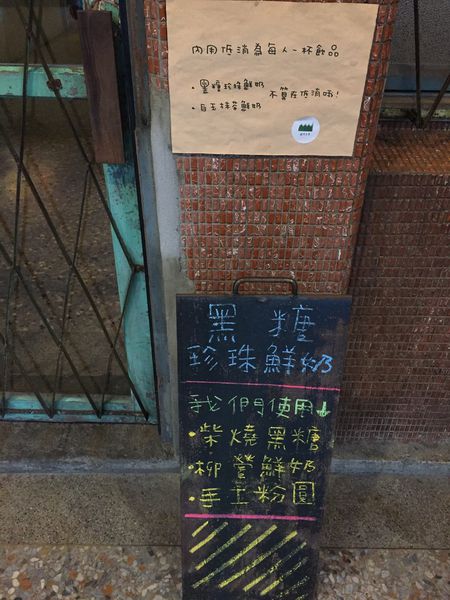 內用低消為每人一杯飲品
·黑糖珍珠鮮奶
不算在低消哦!
·白玉抹茶鮮奶
黑糖
珍珠鮮奶
我們使用↓
·柴燒黑糖
·柳營鮮奶
·手工粉圓